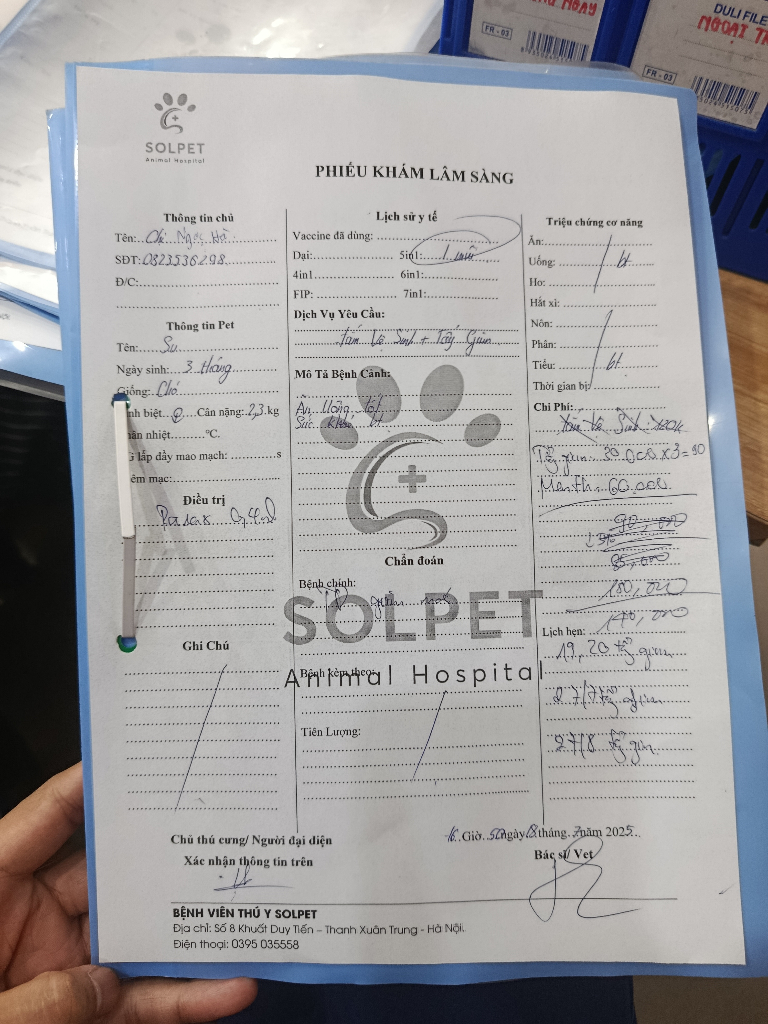 DULI FILE
NGOẠI TR
NGAY
FR - 03
FR - 03
SOLPET
Animal Hospital
PHIẾU KHÁM LÂM SÀNG
Thông tin chủ
Tên: Chị Ngọc Hà
SĐT: 0823536298
Đ/C:
Thông tin Pet
Tên: Su
Ngày sinh: 3 tháng
Giống: Chó
nh biệt Cân nặng: 2,3 kg
ân nhiệt °C.
lấp đầy mao mạch: s
êm mạc:
Điều trị
0,4ml
Ghi Chú
Lịch sử y tế
Vaccine đã dùng:
Dại: 5in1: 1 mũi
4in1 6in1:
FIP: 7in1:
Dịch Vụ Yêu Cầu:
Tắm Vệ Sinh + Tẩy Giun
Mô Tả Bệnh Cảnh:
Ăn Uống tốt
Sức khỏe bt
Chẩn đoán
Bệnh chính:
SOLPET
Animal Hospital
Bệnh kèm theo:
Tiên Lượng:
Triệu chứng cơ năng
Ăn:
Uống: bt
Ho:
Hắt xì:
Nôn:
Phân:
Tiểu: bt
Thời gian bị:
Chi Phí:
Tắm Vệ Sinh 120k
Tẩy giun 30.000 x 3 = 90
60.000
90,000
85,000
180,000
140,000
Lịch hẹn:
19, 20 tẩy giun
27/7 tẩy giun
27/8 tẩy giun
16 Giờ 50 ngày 18 tháng 7 năm 2025
Chủ thú cưng/ Người đại diện
Xác nhận thông tin trên
Bác sĩ/ Vet
BỆNH VIỆN THÚ Y SOLPET
Địa chỉ: Số 8 Khuất Duy Tiến – Thanh Xuân Trung - Hà Nội.
Điện thoại: 0395 035558